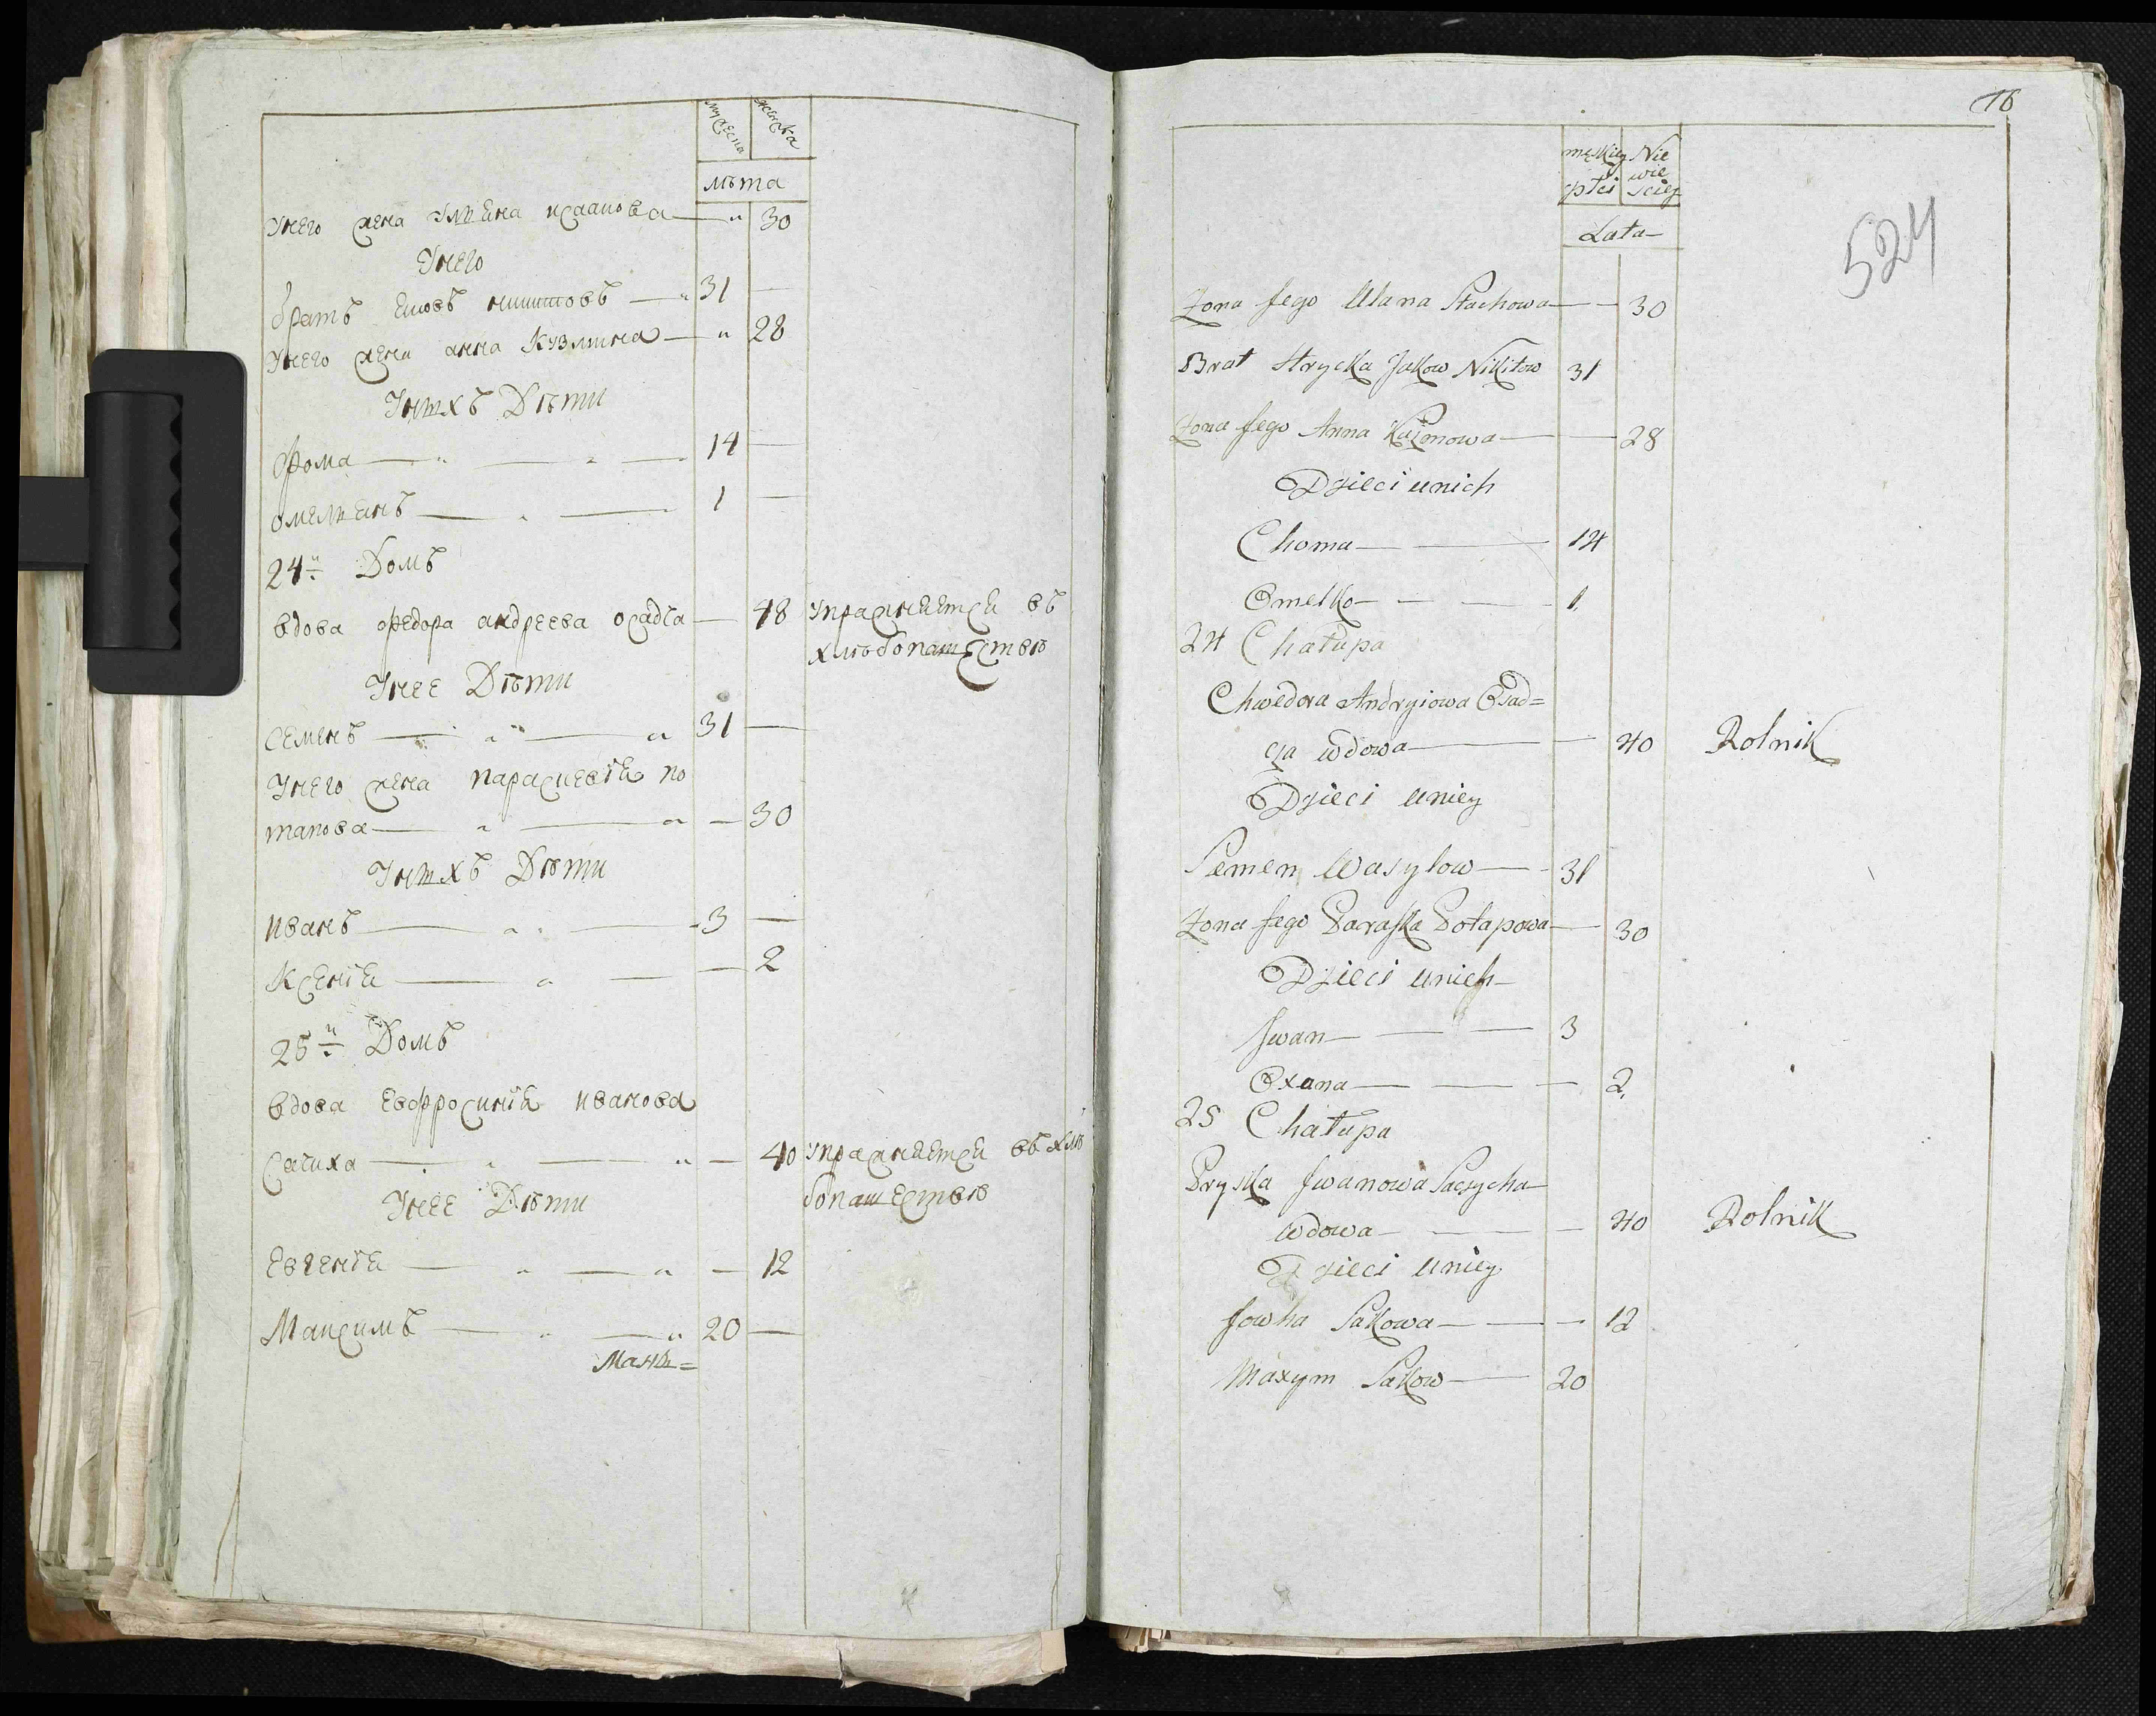 мужеска женска
лѣта
Унего жена Ульяна исаакова — " 30
Унего
братъ яковъ никитовъ — " 31 —
Унего жена анна Кузмина — " 28
Унихъ Дѣти
фома — " — " — 14 —
омельянъ — " — 1 —
24й Домъ
вдова федора андреева осадча — 48 упражняется въ
хлѣбопашествѣ
Унее Дѣти
семенъ — " — " 31 —
Унего жена параскевія по
тапова — " — " — 30
Унихъ Дѣти
иванъ — " — 3 —
Ксенія — " — — 2
25й Домъ
вдова евфросинія иванова
Сачиха — " — " — 40 упражняется въ хлѣ
бопашествѣ
Унее Дѣти
евгенія — " — " — 12
Максимъ — " — " 20 —
16
męskiey Nie
płci wie
sciey
Lata
524
Zona jego Ulana Stachowa — — 30
Brat strycka Jakow Nikitow 31
Zona jego Anna — — 28
Dzieci unich
Choma — — 14
Omelko — — — 1
24 Chałupa
Chwedora Andryiowa Osad=
cza wdowa — — 40 Rolnik
Dzieci uniey
Semen Wasylow — 31
Zona jego Paraska Potapowa — 30
Dzieci unich
Jwan — — — 3
Oxana — — — 2
25 Chałupa
Pryska Jwanowa Saczycha
wdowa — — — 40 Rolnik
Dzieci uniey
Jowha Sakowa — — — 12
Maxym Sakow — 20